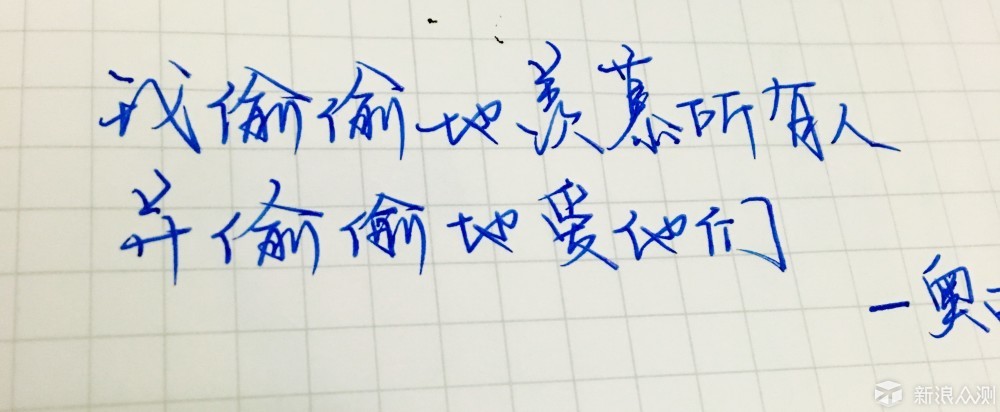 我偷偷地羡慕所有人
并偷偷地爱他们
—奥
新浪众测